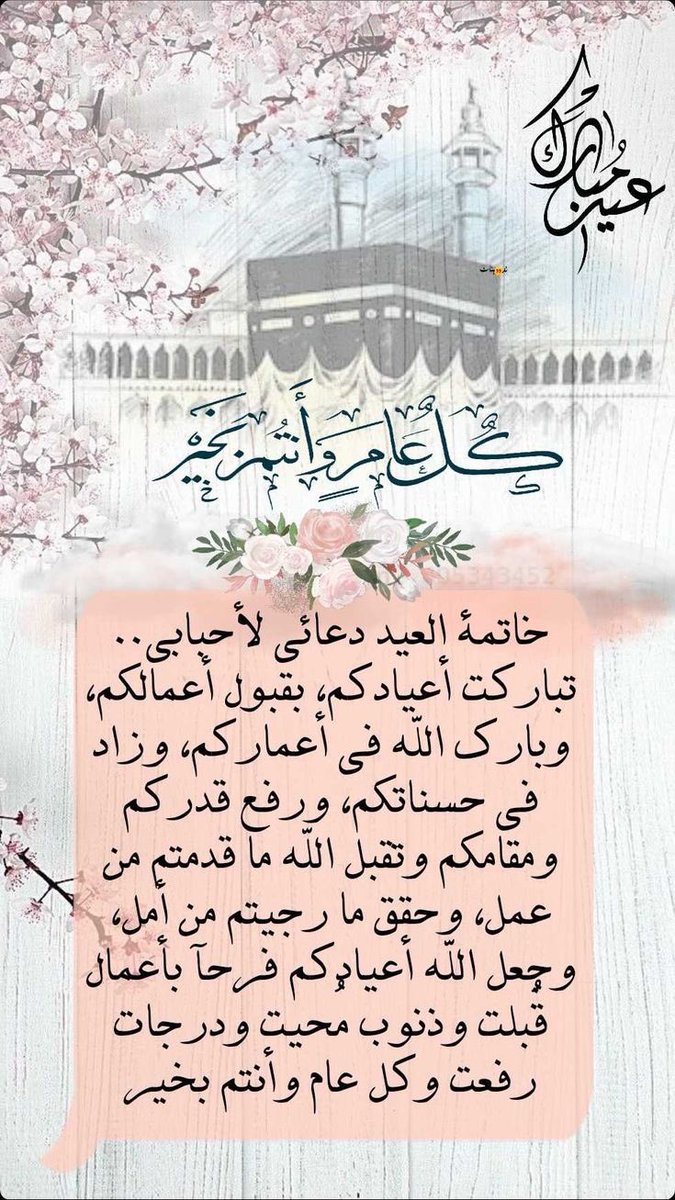 عيد مبارك
كُلُّ عَامٍ وَأَنتُم بِخَيْرٍ
خاتمة العيد دعائى لأحبابى..
تباركت أعيادكم، بقبول أعمالكم،
وبارك اللّه فى أعماركم، وزاد
فى حسناتكم، ورفع قدركم
ومقامكم وتقبل اللّه ما قدمتم من
عمل، وحقق ما رجيتم من أمل،
وجعل اللّه أعيادكم فرحآ بأعمال
قُبلت وذنوب مُحيت ودرجات
رفعت وكل عام وأنتم بخير